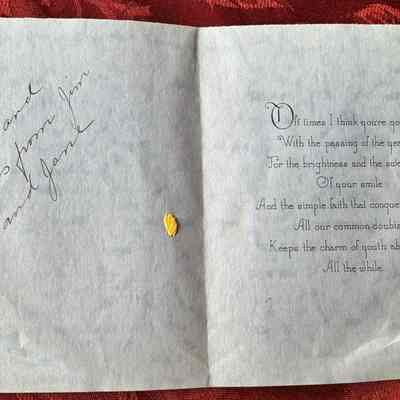 and
from Jim
and Jane
Oft times I think you're
With the passing of the
For the brightness and the
Of your smile
And the simple faith that
All our common doubts
Keeps the charm of youth
All the while.